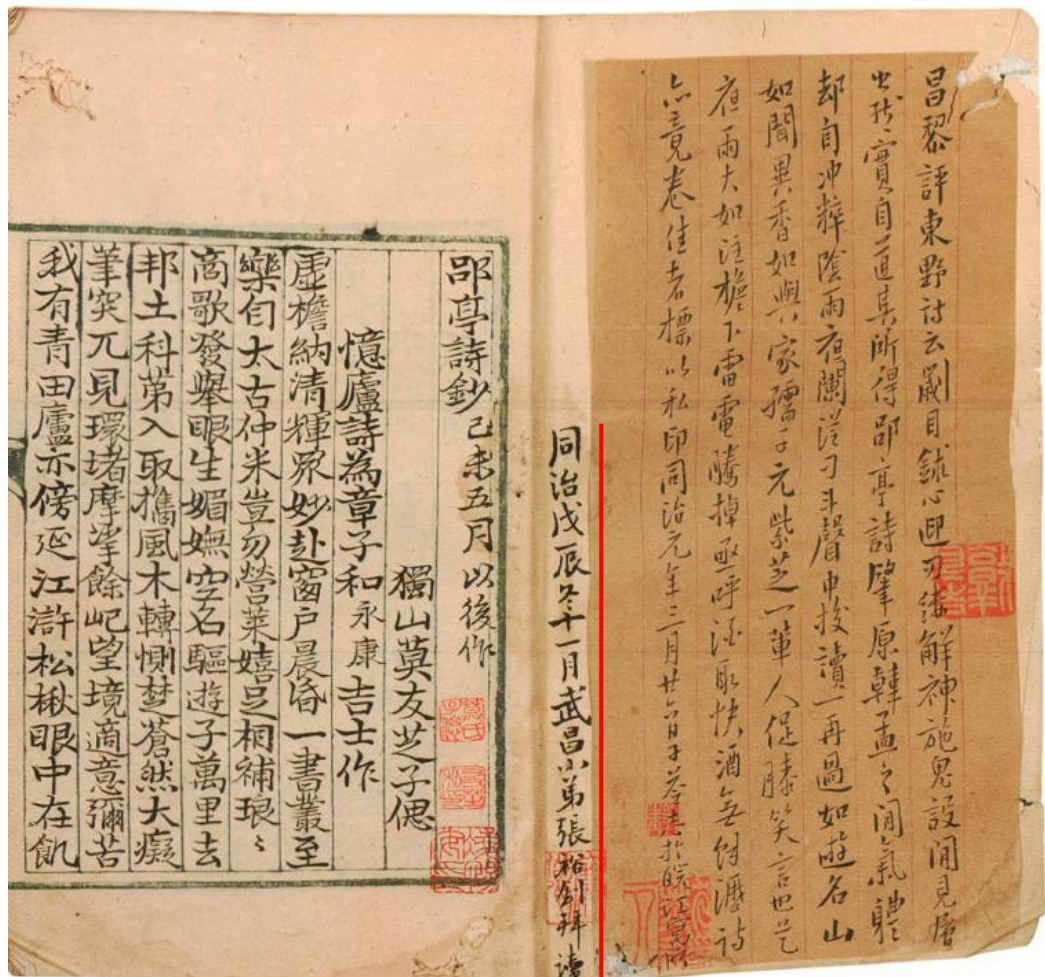 昌黎評東野詩云劌目鉥心迎刃縷解神施鬼設間見層
出實自道其所得郘亭詩肇原韓孟之間氣體
却自沖粹陰雨夜闌從刁斗聲中披讀一再過如遊名山
如聞異香如與家孺子元紫芝一輩人促膝笑言也是
夜雨大如注檐下雷電騰掉亟呼酒取快酒無瀝詩
亦竟卷佳者標以私印同治元年三月廿六日於皖江寓所
同治戊辰冬十一月武昌小弟張裕釗拜讀
郘亭詩鈔 己未五月以後作
獨山莫友芝子偲
憶廬詩為章子和永康吉士作
虛檐納清輝眾妙赴窗戶晨昏一書叢至
樂自太古仲米豈勿營萊嬉足相補琅〻
商歌發舉眼生媚嫵空名驅遊子萬里去
邦土科第入取攜風木轉惻楚蒼然大癡
筆突兀見環堵摩挲餘屺望境適意彌苦
我有青田廬亦傍延江滸松楸眼中在飢